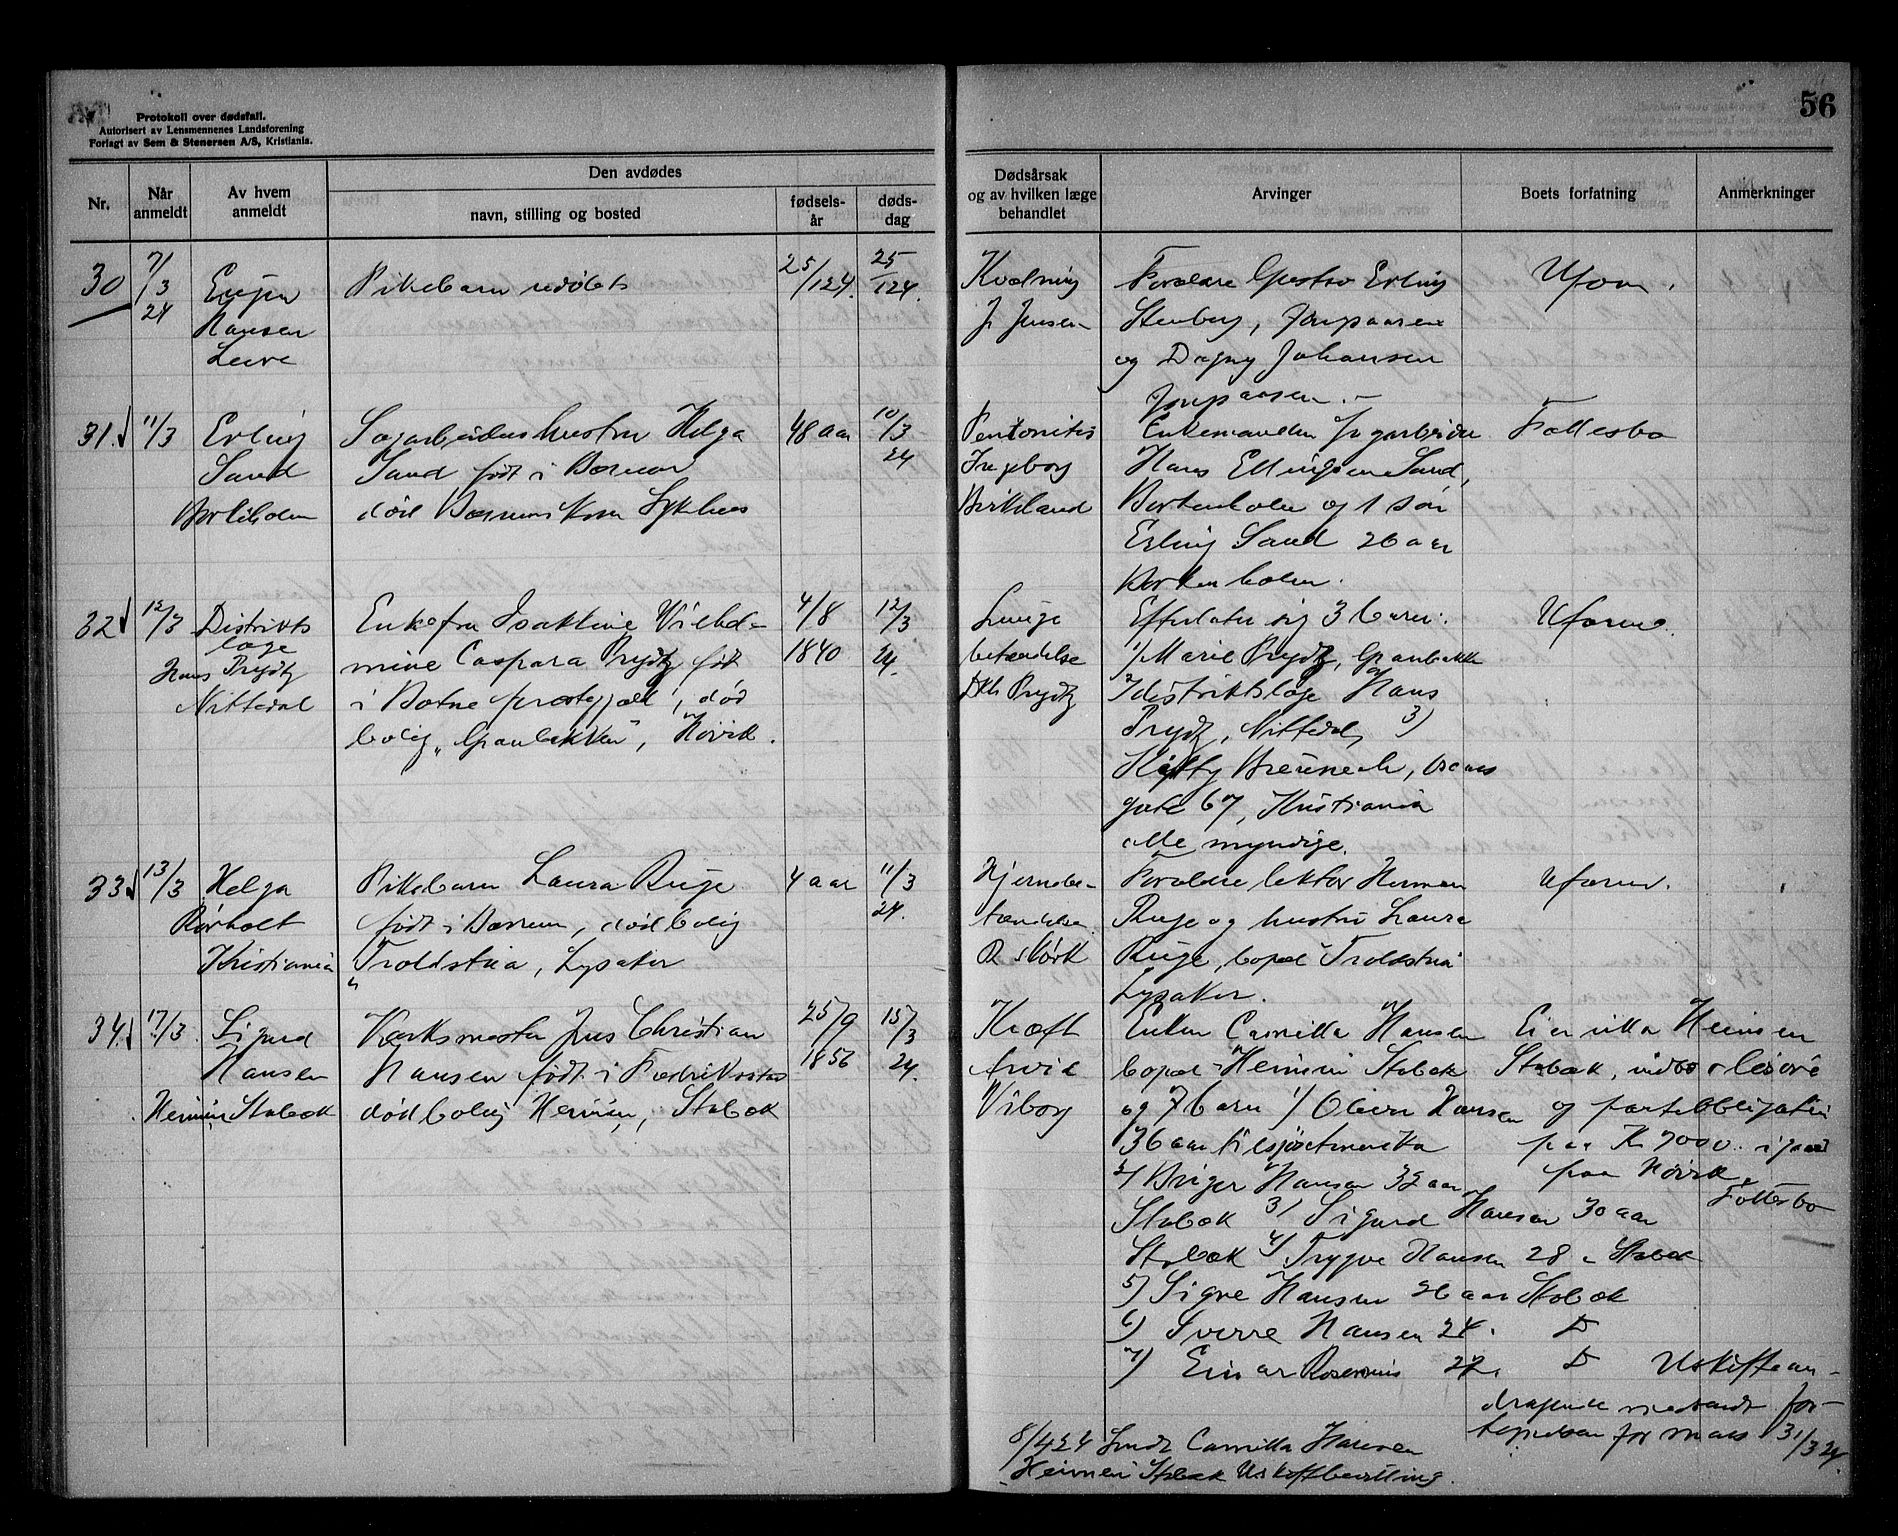 56
Protokoll over dødsfall.
Autorisert av Lensmennenes Landsforening
Forlagt av Sem & Stenersen A/S, Kristiania.
Nr.
Når anmeldt
Av hvem anmeldt
Den avdødes
navn, stilling og bosted
fødsels-år
døds-dag
Dødsårsak og av hvilken læge behandlet
Arvinger
Boets forfatning
Anmerkninger
30
7/3 24
Hansen
Pikebarn udøbt
25/1 24.
25/1 24.
Kvælning
J. Jensen
Forældre Gustav Erling
Stenberg,
og Dagny Johansen
31
11/3
Erling
Sand
Sagarbeiderhustru Helga
Sand født i Bærum
død Bærums Kom Sykehus
48 aar
10/3 24
Ingeborg
Birkeland
Enkemanden Sagarbeider
Hans Ellingsen Sand,
og 1 søn
Erling Sand 26 aar
Fællesbo
32
12/3
Distrikts
læge
Hans Prydtz
Nittedal
Enkefru Isaktine Vilhel-
mine Caspara Prydtz født
i Botne præstegjæld, død
bolig "Granbakken", Høvik.
4/8 1840
12/3 24.
Lunge
betændelse
Prydtz
Efterlater sig 3 barn:
1) Marie Prydtz, Granbakken
2) distriktslæge Hans
Prydtz, Nittedal, 3)
gate 67, Kristiania
alle myndige.
33
13/3
Helga
Rørholt
Kristiania
Pikebarn Laura Ruge
født i Bærum, død bolig
Troldstua, Lysaker
4 aar
11/3 24.
Hjernebe-
tændelse.
R. Mørk
Forældre lektor Herman
Ruge og hustru Laura
Ruge, bopæl Troldstua
Lysaker.
34
17/3
Sigurd
Hansen
Heimen Stabæk
Verksmester Jens Christian
Hansen født i Fredrikstad
død bolig Heimen, Stabæk
25/9 1856
15/3 24.
Kræft
Arvid
Viborg
Enken Camilla Hansen
bopæl Heimen Stabæk
og 7 barn 1) Oliver Hansen
36 aar tilsjøs Amerika
2) Birger Hansen 32 aar
Stabæk 3) Sigurd Hansen 30 aar
Stabæk 4) Trygve Hansen 28 " Stabæk
5) Signe Hansen 26 aar Stabæk
6) Sverre Hansen 24. D
7) Einar Rosenius 22. D
Eier villa Heimen
Stabæk, indbo
og pantobligation
paa Kr 7000.
paa Høvik
Fællesbo
Uskiftean-
dragende medsendt for-
for mars 31/3 24.
8/4 24 Sendt Camilla Hansen
Heimen Stabæk Uskiftbevilling.